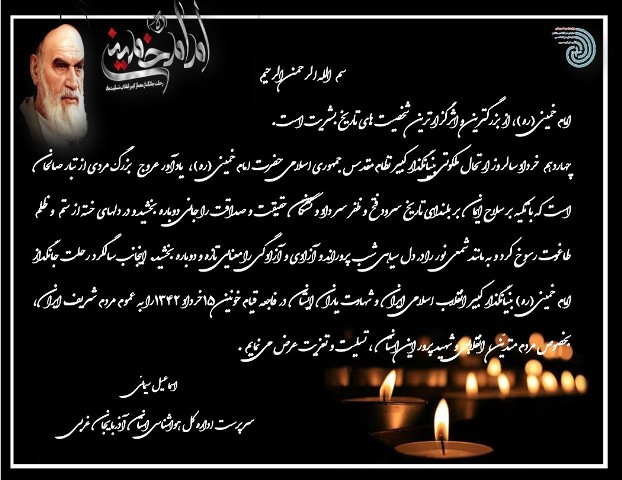 امام خمینی
رحلت جانگداز معمار کبیر انقلاب تسلیت باد
بسم الله الرحمن الرحیم
امام خمینی (ره)، از بزرگترین و اثرگذارترین شخصیت های تاریخ بشریت است.
چهاردهم خرداد سالروز ارتحال ملکوتی بنیانگذار کبیر نظام مقدس جمهوری اسلامی حضرت امام خمینی (ره)، یادآور عروج بزرگ مردی از تبار صالحان
است که با تکیه بر سلاح ایمان بر بلندای تاریخ سرود فتح و ظفر سر داد و تشنگان حقیقت و صداقت را جانی دوباره بخشید و در دلهای خسته از ستم و ظلم
طاغوت رسوخ کرد و به مانند شمعی نور را در دل سیاهی شب پروراند و آزادی و آزادگی را معنایی تازه و دوباره بخشید. اینجانب سالگرد رحلت جانگداز
امام خمینی (ره) بنیانگذار کبیر انقلاب اسلامی ایران و شهادت یاران ایشان در فاجعه قیام خونین ۱۵ خرداد ۱۳۴۲ را به عموم مردم شریف ایران،
بخصوص مردم متدین، انقلابی و شهید پرور این استان، تسلیت و تعزیت عرض می نمایم .
اسماعیل سیمانی
سرپرست اداره کل هواشناسی استان آذربایجان غربی